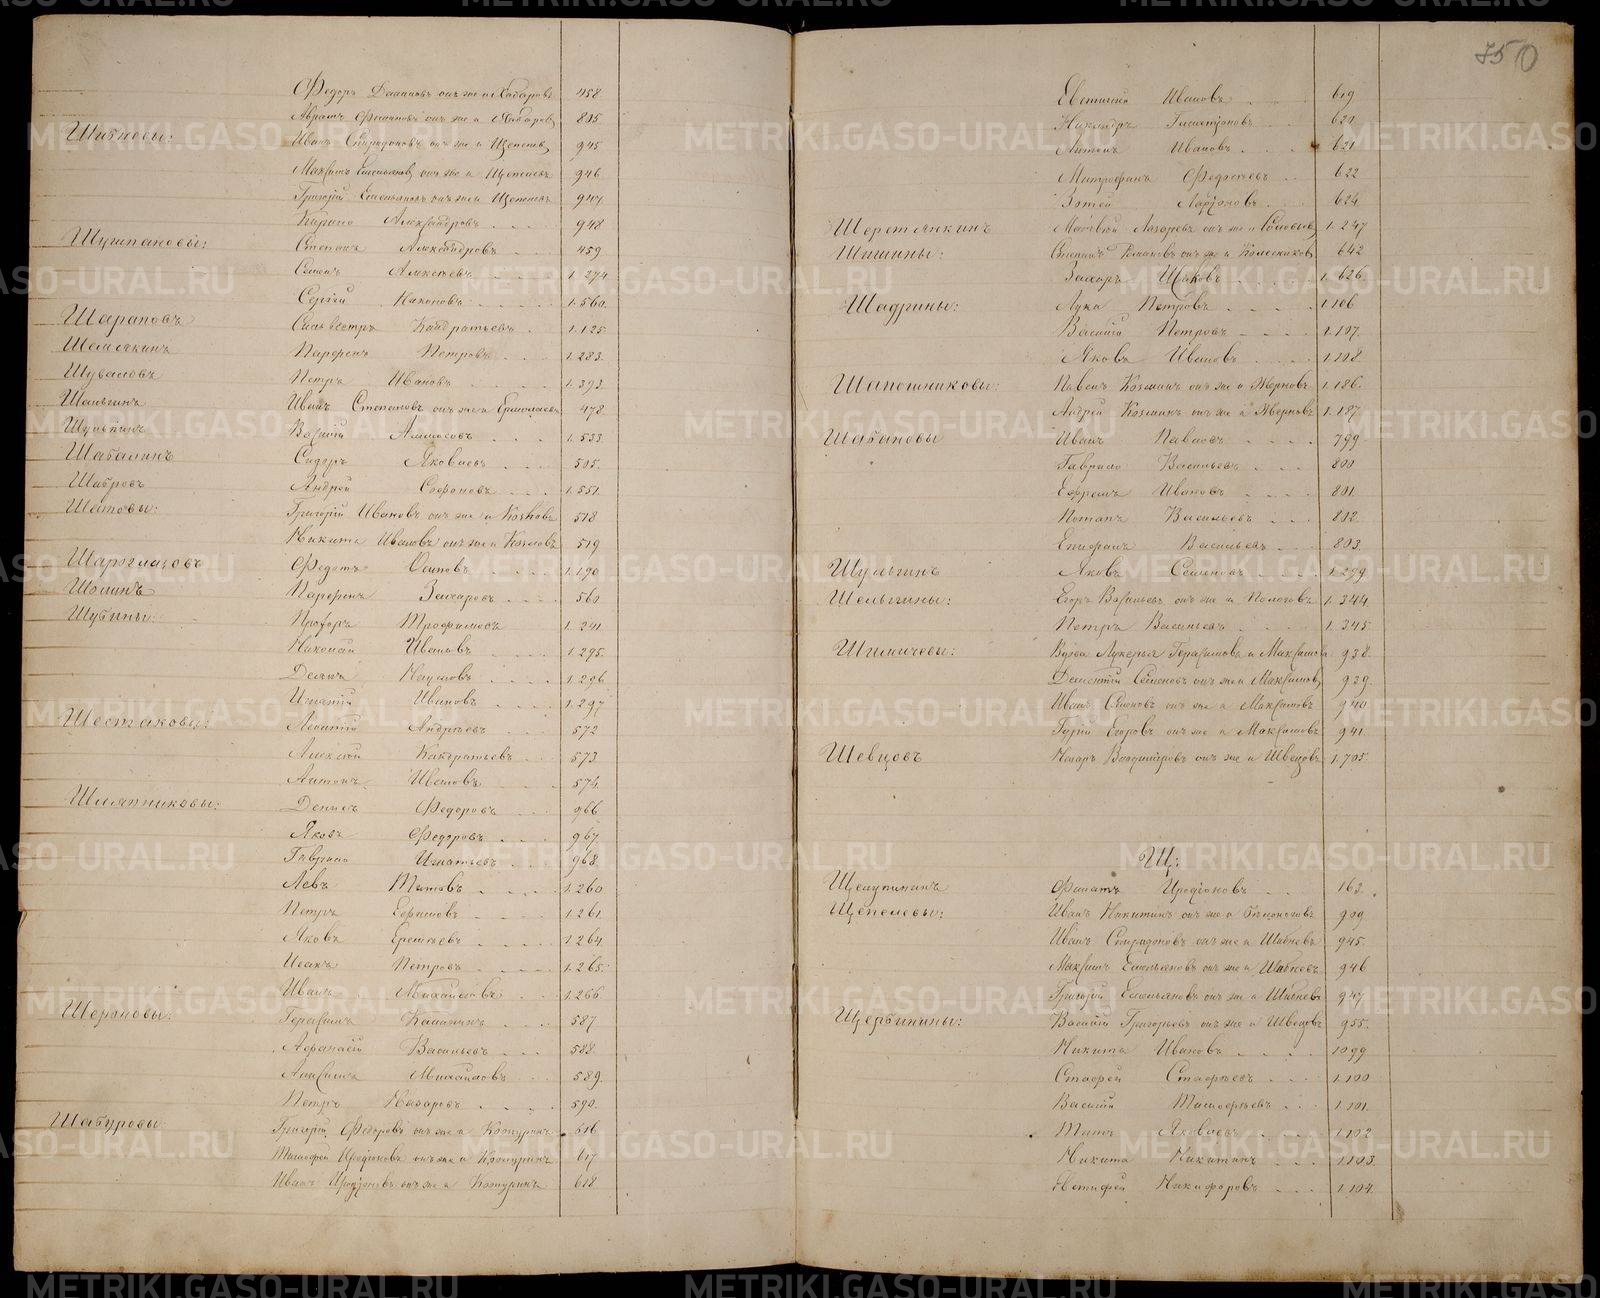 750
Федоръ Даниловъ онъ же и Хабаровъ 458
Авраамъ Филиповъ онъ же и Хабаровъ 805
Шибневы:
Иванъ Спиридоновъ онъ же и Щепелевъ 945
Максимъ Емельяновъ онъ же и Щепелевъ 946
Григорій Емельяновъ онъ же и Щепелевъ 947
Кирило Александровъ 948
Шушпановы:
Степанъ Александровъ 459
Семенъ Алексѣевъ 1.274
Сергій Никоновъ 1.560
Шараповъ Сильвестръ Кондратьевъ 1.125
Шемякинъ Парфенъ Петровъ 1.283
Шуваловъ Петръ Ивановъ 1.393
Шаньгинъ Иванъ Степановъ онъ же и Ермолаевъ 478
Шулькинъ Василій Алмосовъ 1.533
Шабалинъ Сидоръ Яковлевъ 505
Шабровъ Андрей Софоновъ 1.551
Шатовы: Григорій Ивановъ онъ же и Козловъ 518
Никита Ивановъ онъ же и Козловъ 519
Шароглазовъ Федотъ Осиповъ 1.190
Шолинъ Парфенъ Захаровъ 560
Шубины: Прохоръ Трофимовъ 1.241
Николай Ивановъ 1.295
Демидъ Наумовъ 1.296
Игнатій Ивановъ 1.297
Шестаковы: Леонтій Андреевъ 572
Алексѣй Кондратьевъ 573
Антонъ Ивановъ 574
Шляпниковы: Денисъ Федоровъ 966
Яковъ Федоровъ 967
Гаврило Игнатьевъ 968
Левъ Титовъ 1.260
Петръ Ефимовъ 1.261
Яковъ Еремѣевъ 1.264
Исакъ Петровъ 1.265
Иванъ Михайловъ 1.266
Шероновы: Герасимъ Калининъ 587
Афанасій Васильевъ 588
Анисимъ Михайловъ 589
Петръ Назаровъ 590
Шабуровы: Григорій Федоровъ онъ же и Кожуринъ 616
Тимофей Иродіоновъ онъ же и Кожуринъ 617
Иванъ Иродіоновъ онъ же и Кожуринъ 618
Евстигній Ивановъ 619
Никандръ Галактіоновъ 620
Антонъ Ивановъ 621
Митрофанъ Федосѣевъ 622
Зотей Ларіоновъ 624
Шеремянкинъ Матвѣй Лазаревъ онъ же и Соловьевъ 1.247
Шишины: Степанъ Романовъ онъ же и Колесниковъ 642
Захаръ Исаковъ 1.626
Шадрины: Лука Петровъ 1.106
Василій Петровъ 1.107
Яковъ Ивановъ 1.108
Шапошниковы: Павелъ Козминъ онъ же и Жерновъ 1.186
Андрей Козминъ онъ же и Жерновъ 1.187
Шабановы Иванъ Павловъ 799
Гаврило Васильевъ 800
Ефремъ Ивановъ 801
Потапъ Васильевъ 802
Епифанъ Васильевъ 803
Шульгинъ Яковъ Семеновъ 1.299
Шельгины: Егоръ Васильевъ онъ же и Пологовъ 1.344
Петръ Васильевъ 1.345
Шимичевы: Вдова Лукерья Герасимова и Максимова 938
Дементій Семеновъ онъ же и Максимовъ 939
Иванъ Семеновъ онъ же и Максимовъ 940
Гурій Егоровъ онъ же и Максимовъ 941
Шевцовъ Назаръ Владиміровъ онъ же и Швецовъ 1.705
Щ:
Щелупининъ Филатъ Иродіоновъ 163
Щепелевы: Иванъ Никитинъ онъ же и Бѣлоносовъ 909
Иванъ Спиридоновъ онъ же и Шибневъ 945
Максимъ Емельяновъ онъ же и Шибневъ 946
Григорій Емельяновъ онъ же и Шибневъ 947
Щербинины: Василій Григорьевъ онъ же и Швецовъ 955
Никита Ивановъ 1099
Стафей Стафѣевъ 1.100
Василій Тимофѣевъ 1.101
Титъ Яковлевъ 1.102
Никита Никитинъ 1.103
Никифоровъ 1.104
METRIKI.GASO-URAL.RU